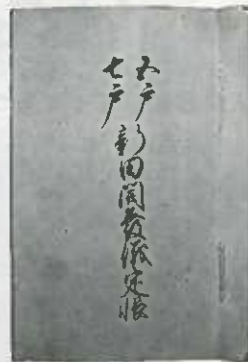 五戸
七戸
新田開発儀定帳